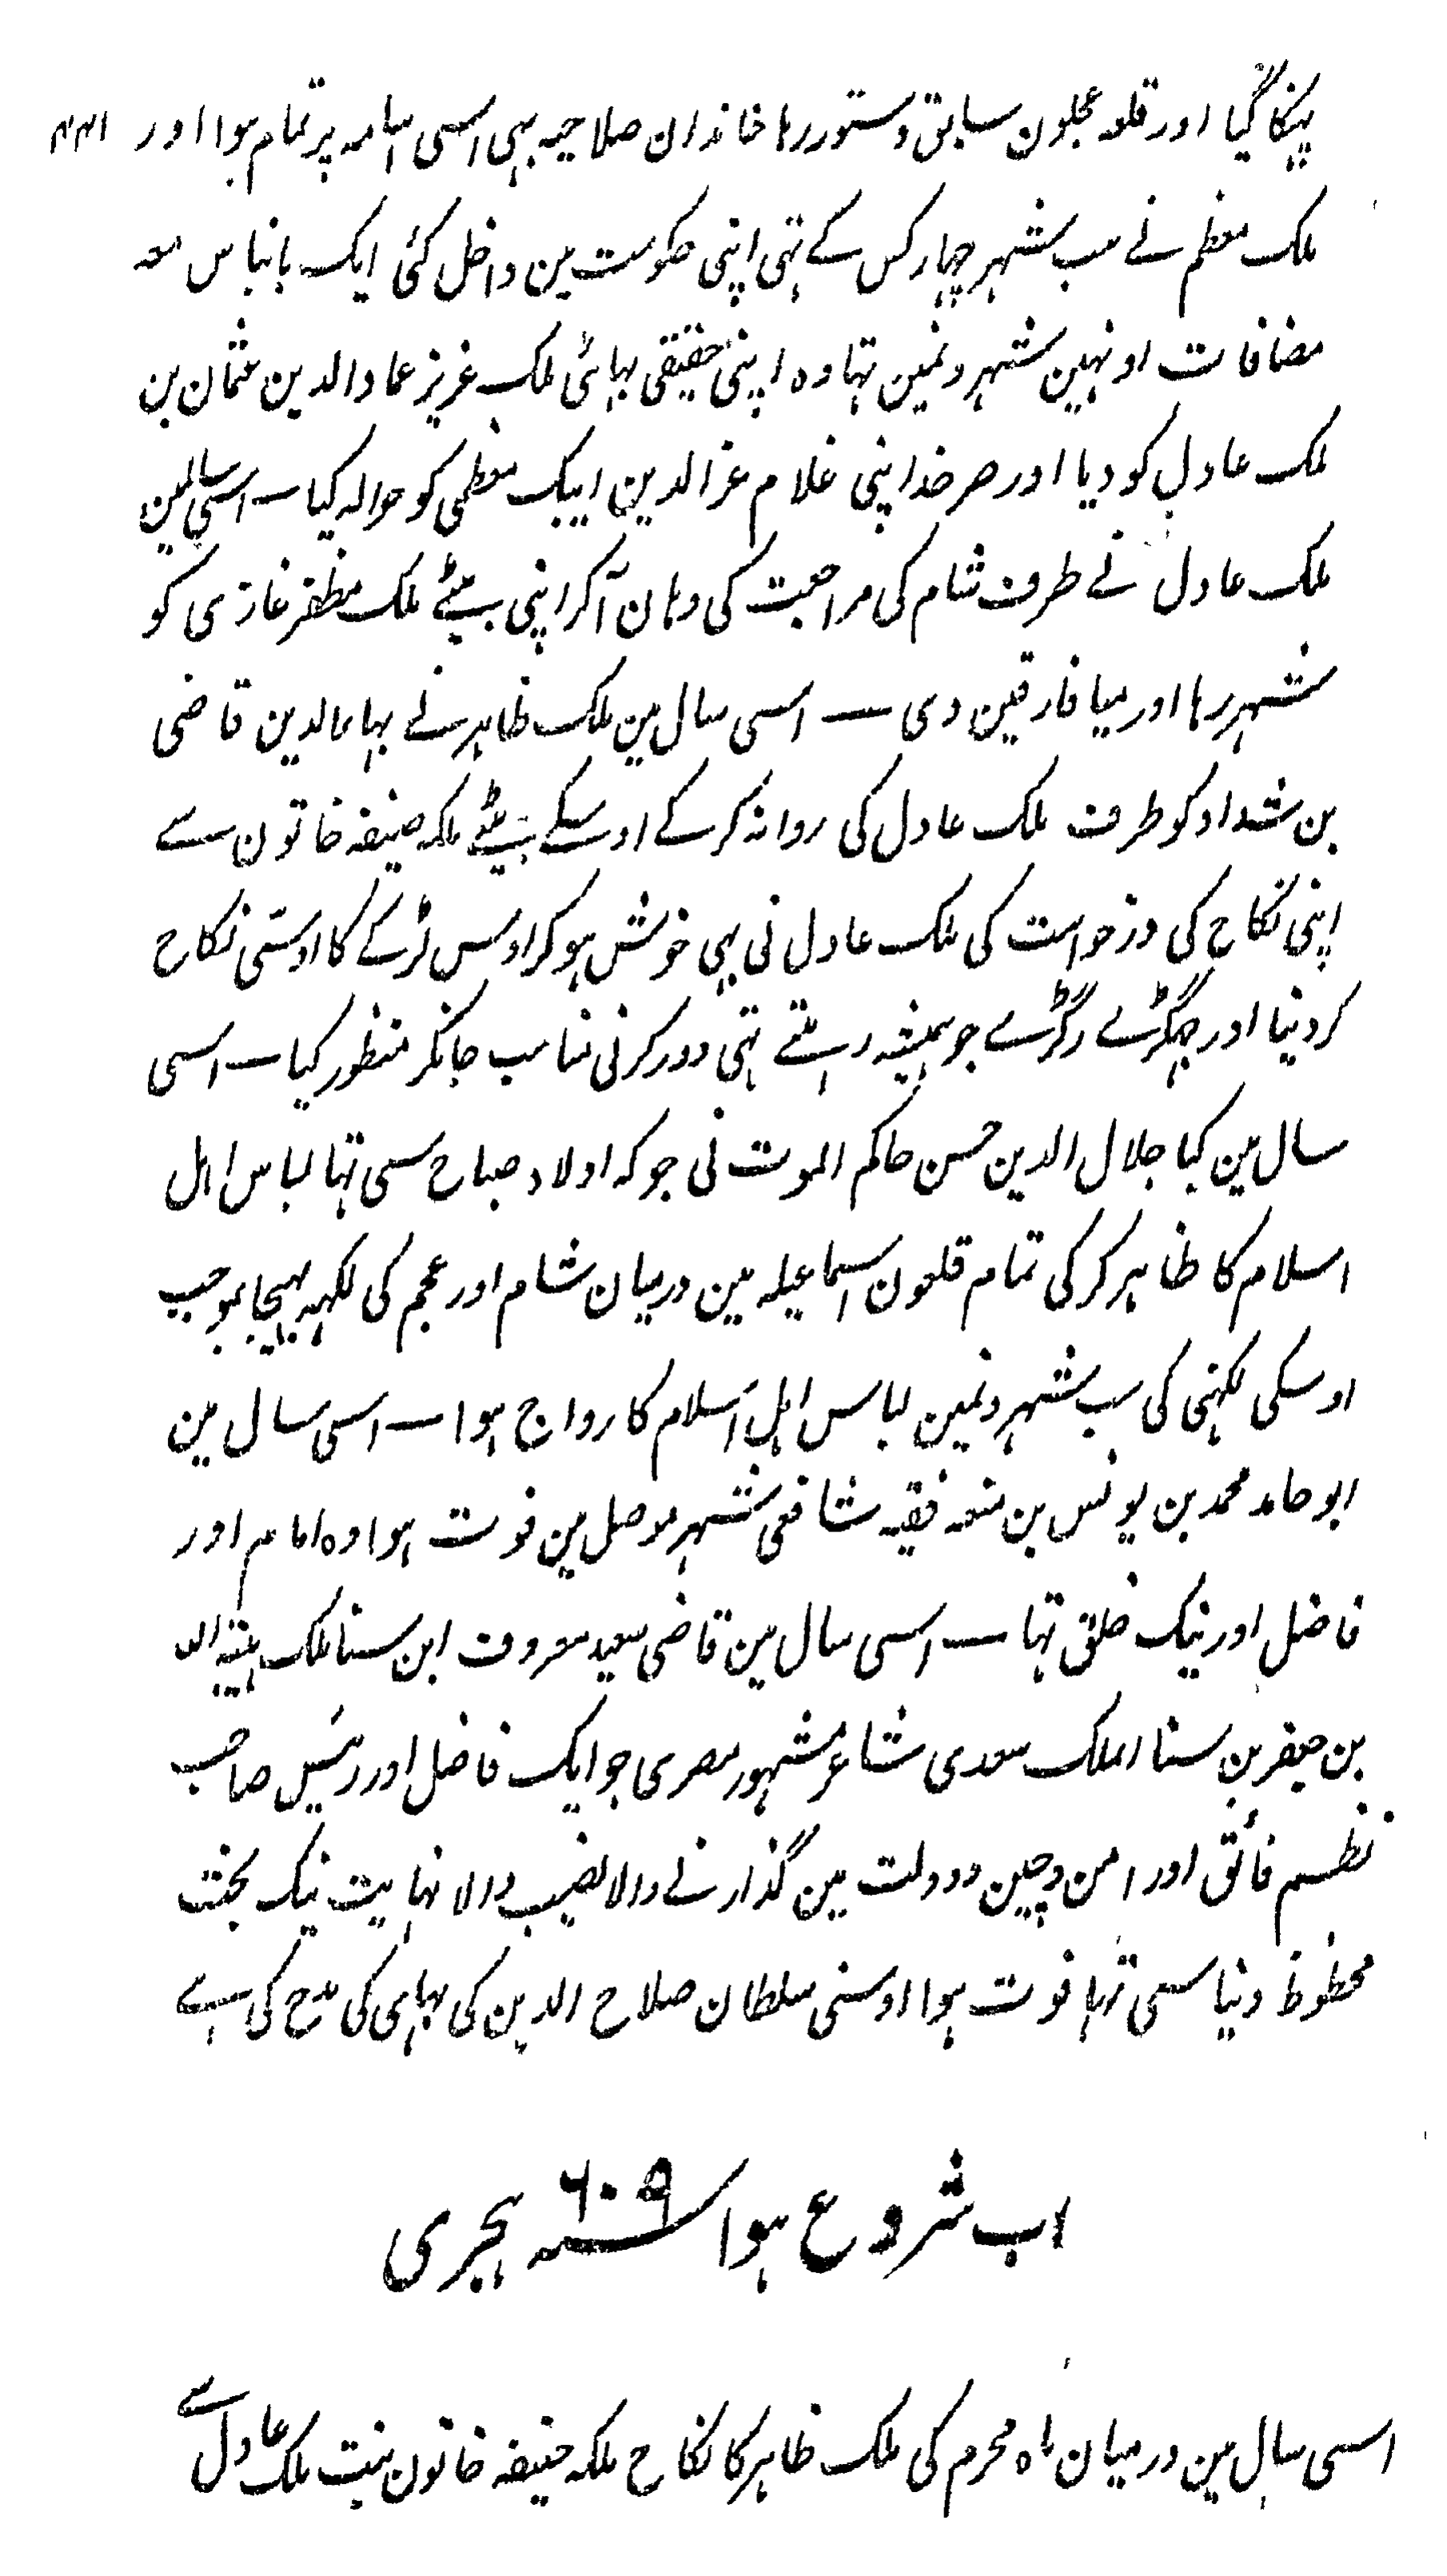 پہنکا گیا اور قلعہ عجلون سابق دستور رہا خاندان صلاحیہ بہی اسی اسامہ پر تمام ہوا اور ۴۴۱
ملک معظم نے سب شہر چہارکس کے تہی اپنی حکومت مین داخل کئی ایک بانیاس معہ
مضافات اونہین شہرونمین تہا وہ اپنی حقیقی بہائی ملک عزیز عمادالدین عثمان بن
ملک عادل کو دیا اور صرخد اپنی غلام عزالدین ایبک معظمی کو حوالہ کیا ــ اسی سالمین
ملک عادل نے طرف شام کی مراجعت کی وہان آکر اپنی بیٹے ملک مظفر غازی کو
شہر رہا اور میافارقین دی ــ اسی سال مین ملک ظاہر نے بہاءالدین قاضی
بن شداد کو طرف ملک عادل کی روانہ کرکے اوسکے بیٹے ملکہ ضیفہ خاتون سے
اپنی نکاح کی درخواست کی ملک عادل نی بہی خوش ہوکر اوس لڑکے کا اوسّی نکاح
کردینا اور جہگڑے رگڑے جو ہمیشہ رہتے تہی دور کرنی مناسب جانکر منظور کیا ــ اسی
سال مین کیا جلال الدین حسن حاکم الموت نی جو کہ اولاد صباح سی تہا لباس اہل
اسلام کا ظاہر کرکی تمام قلعون اسماعیلہ مین درمیان شام اور عجم کی لکہہ بہیجا بموجب
اوسکی لکہنی کی سب شہرونمین لباس اہل اسلام کا رواج ہوا ــ اسی سال مین
ابو حامد محمد بن یونس بن منعہ فقیہ شافعی شہر موصل مین فوت ہوا وہ امام اور
فاضل اور نیک خلق تہا ــ اسی سال مین قاضی سعید معروف ابن سناملک ہبۃ اللہ
بن جعفر بن سناالملک سعدی شاعر مشہور مصری جو ایک فاضل اور رئیس صاحب
نظم فائق اور امن وچین ودولت مین گذارنے والا نصیب والا نہایت نیک بخت
محظوظ دنیا سی تہا فوت ہوا اوسنی سلطان صلاح الدین کی بہائی کی مدح کی ہے
اب شروع ہوا سنہ ۶۰۹ ہجری
اسی سال مین درمیان ماہ محرم کی ملک ظاہر کا نکاح ملکہ ضیفہ خاتون بنت ملک عادل سے